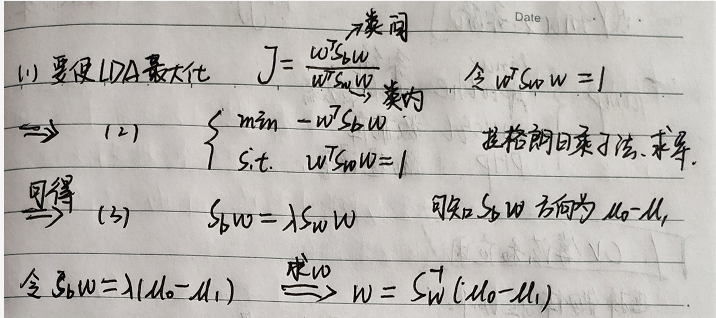 Date
→类间
(1) 要使LDA最大化 J = wᵀS_b w / wᵀS_w w 令 wᵀS_w w = 1
→类内
⇒ (2) { min -wᵀS_b w
s.t. wᵀS_w w = 1 拉格朗日乘子法、求导.
可得
⇒ (3) S_b w = λS_w w 可知 S_b w 方向为 μ₀-μ₁
令 S_b w = λ(μ₀-μ₁) 求w ⇒ w = S_w⁻¹(μ₀-μ₁)